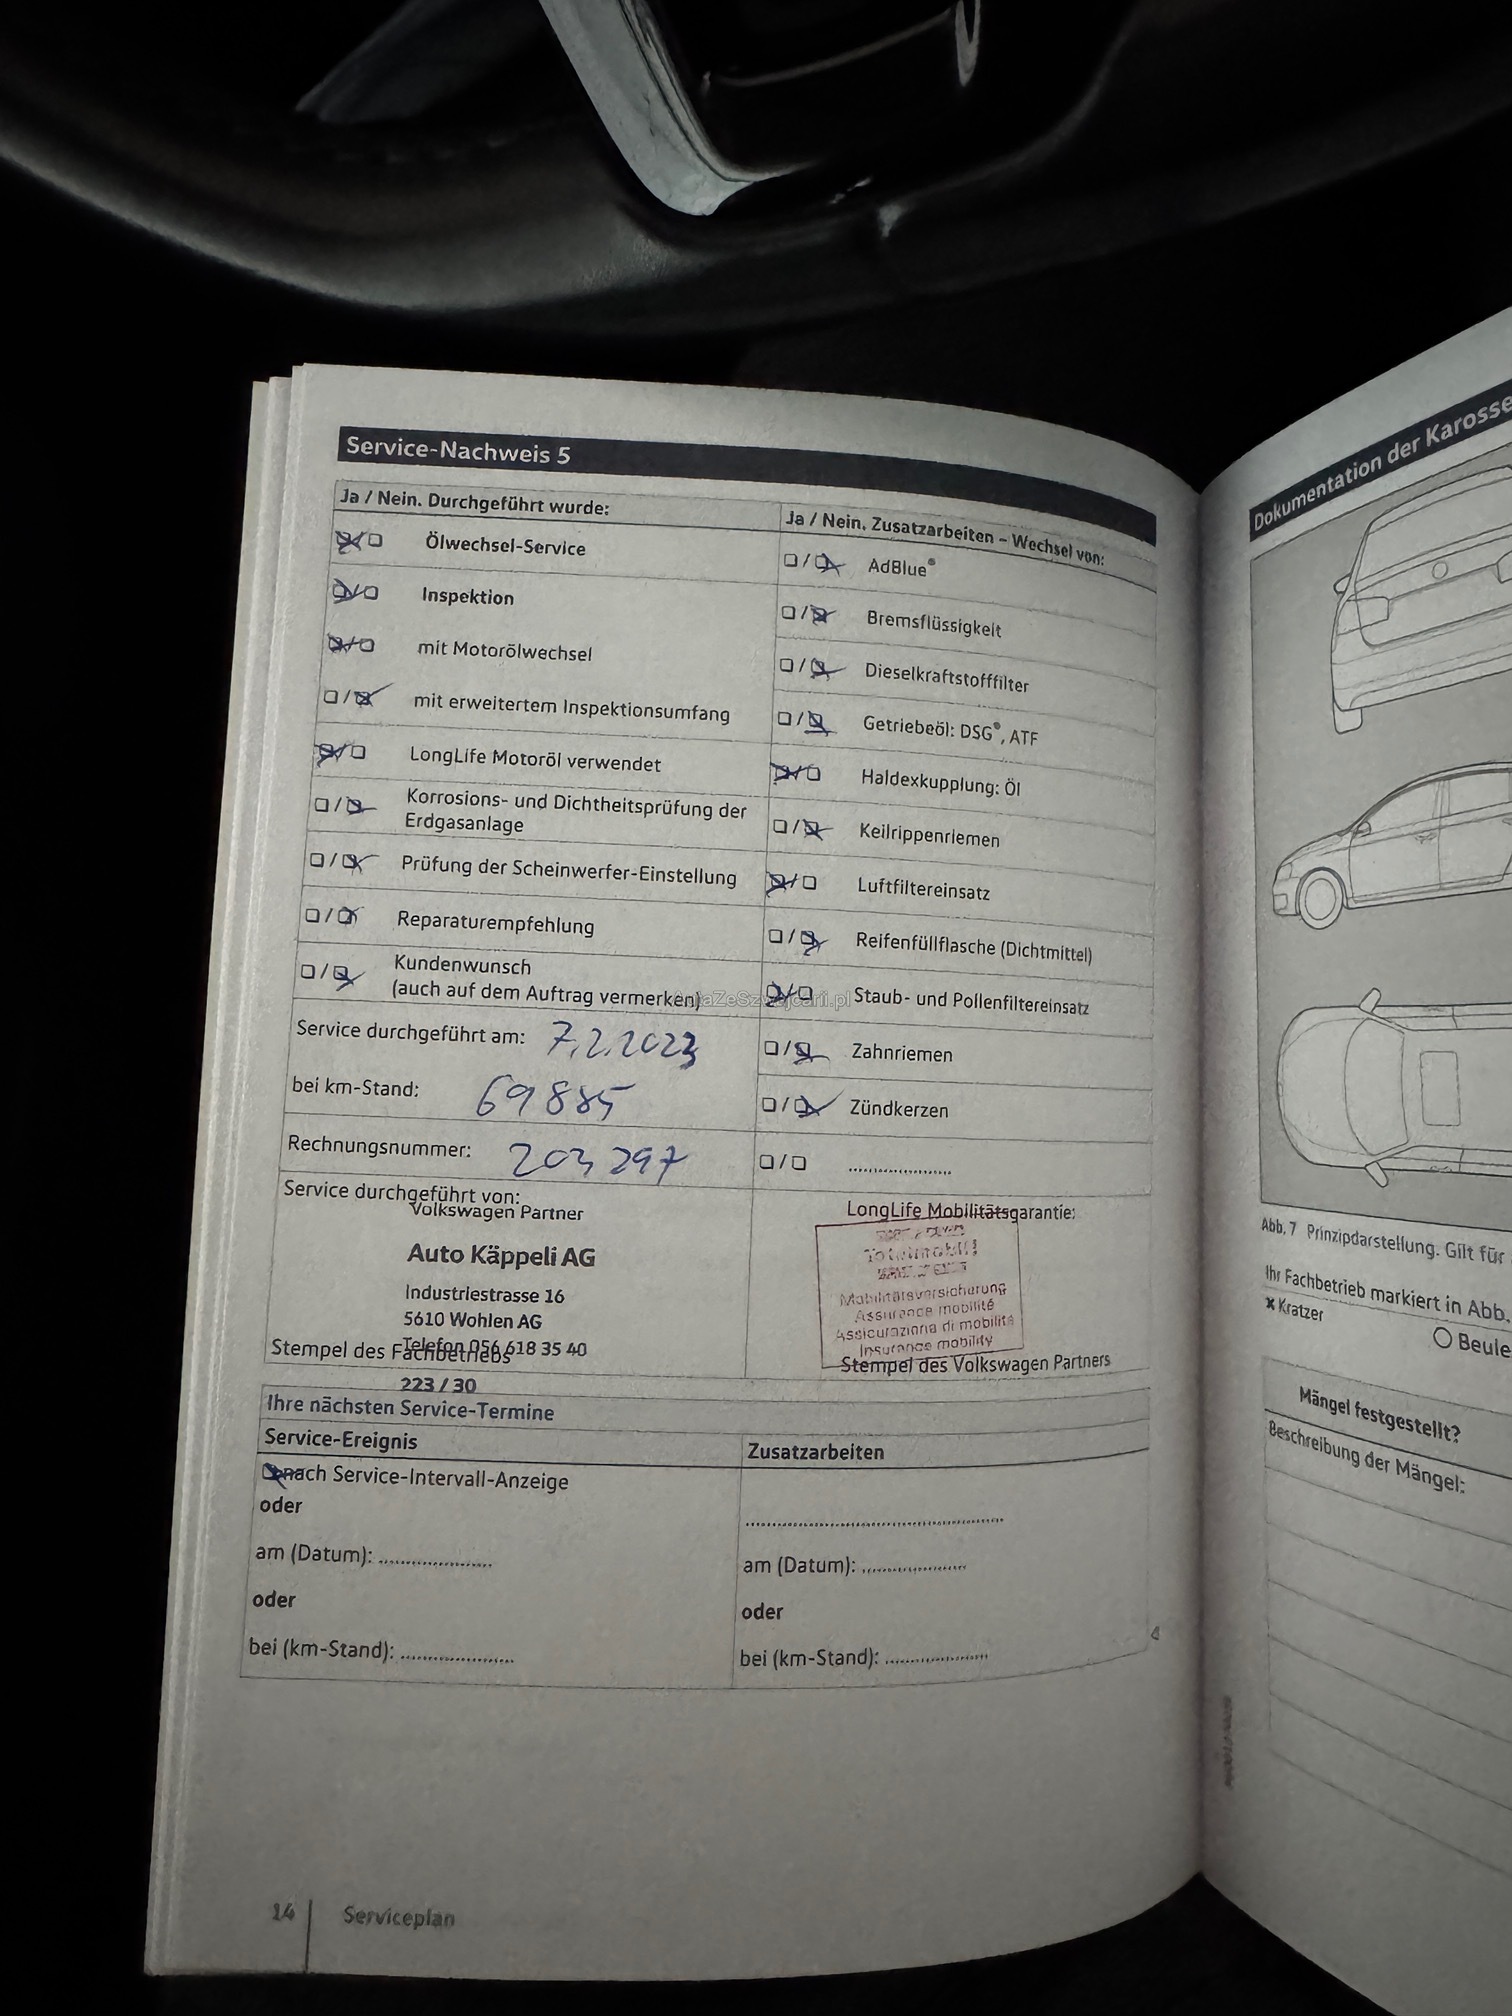 Service-Nachweis 5
Ja / Nein. Durchgeführt wurde:
Ölwechsel-Service
Inspektion
mit Motorölwechsel
mit erweitertem Inspektionsumfang
LongLife Motoröl verwendet
Korrosions- und Dichtheitsprüfung der
Erdgasanlage
Prüfung der Scheinwerfer-Einstellung
Reparaturempfehlung
Kundenwunsch
(auch auf dem Auftrag vermerken)
Service durchgeführt am: 7.2.2023
bei km-Stand: 69885
Rechnungsnummer: 203297
Service durchgeführt von:
Volkswagen Partner
Auto Käppeli AG
Industriestrasse 16
5610 Wohlen AG
Telefon 056 618 35 40
Stempel des Fachbetriebs
223 / 30
Ja / Nein. Zusatzarbeiten – Wechsel von:
AdBlue®
Bremsflüssigkeit
Dieselkraftstofffilter
Getriebeöl: DSG®, ATF
Haldexkupplung: Öl
Keilrippenriemen
Luftfiltereinsatz
Reifenfüllflasche (Dichtmittel)
Staub- und Pollenfiltereinsatz
Zahnriemen
Zündkerzen
LongLife Mobilitätsgarantie:
Totalmobil!
Mobilitätsversicherung
Assurance mobilité
Assicurazione di mobilità
Insurance mobility
Stempel des Volkswagen Partners
Ihre nächsten Service-Termine
Service-Ereignis
nach Service-Intervall-Anzeige
oder
am (Datum):
oder
bei (km-Stand):
Zusatzarbeiten
am (Datum):
oder
bei (km-Stand):
14 Serviceplan
AutaZeSzwajcarii.pl
Dokumentation der Karosse
Abb. 7 Prinzipdarstellung. Gilt für
Ihr Fachbetrieb markiert in Abb.
Kratzer
Beule
Mängel festgestellt?
Beschreibung der Mängel: